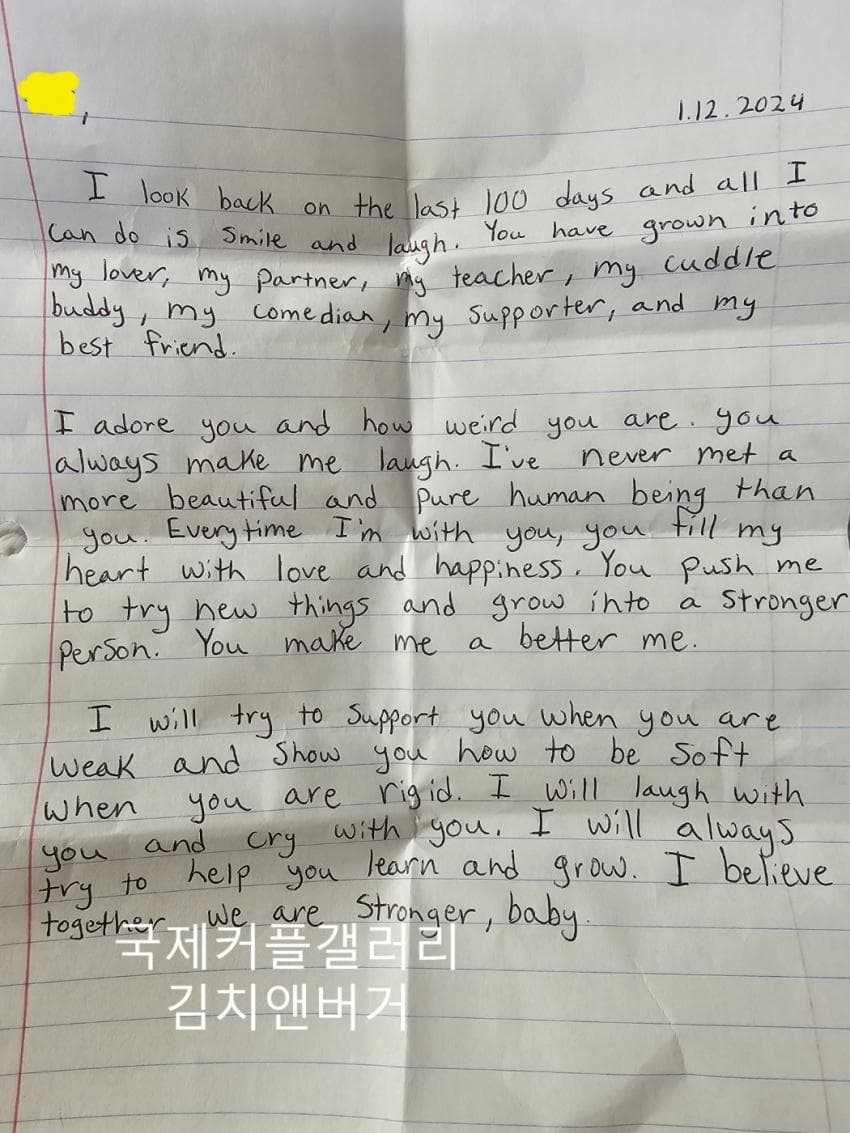 , 1.12.2024
I look back on the last 100 days and all I
can do is smile and laugh. You have grown into
my lover, my partner, my teacher, my cuddle
buddy, my comedian, my supporter, and my
best friend.
I adore you and how weird you are. you
always make me laugh. I've never met a
more beautiful and pure human being than
you. Everytime I'm with you, you fill my
heart with love and happiness. You push me
to try new things and grow into a stronger
person. You make me a better me.
I will try to support you when you are
weak and show you how to be soft
when you are rigid. I will laugh with
you and cry with you. I will always
try to help you learn and grow. I believe
together we are stronger, baby.
국제커플갤러리
김치앤버거